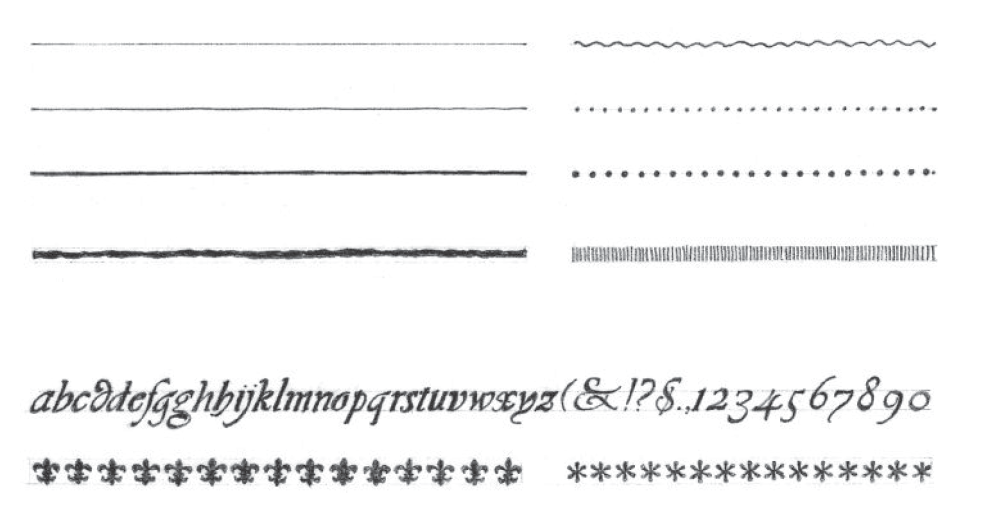 abcddefgghhijklmnopqrstuvwxyz(&!?$.,1234567890
***************